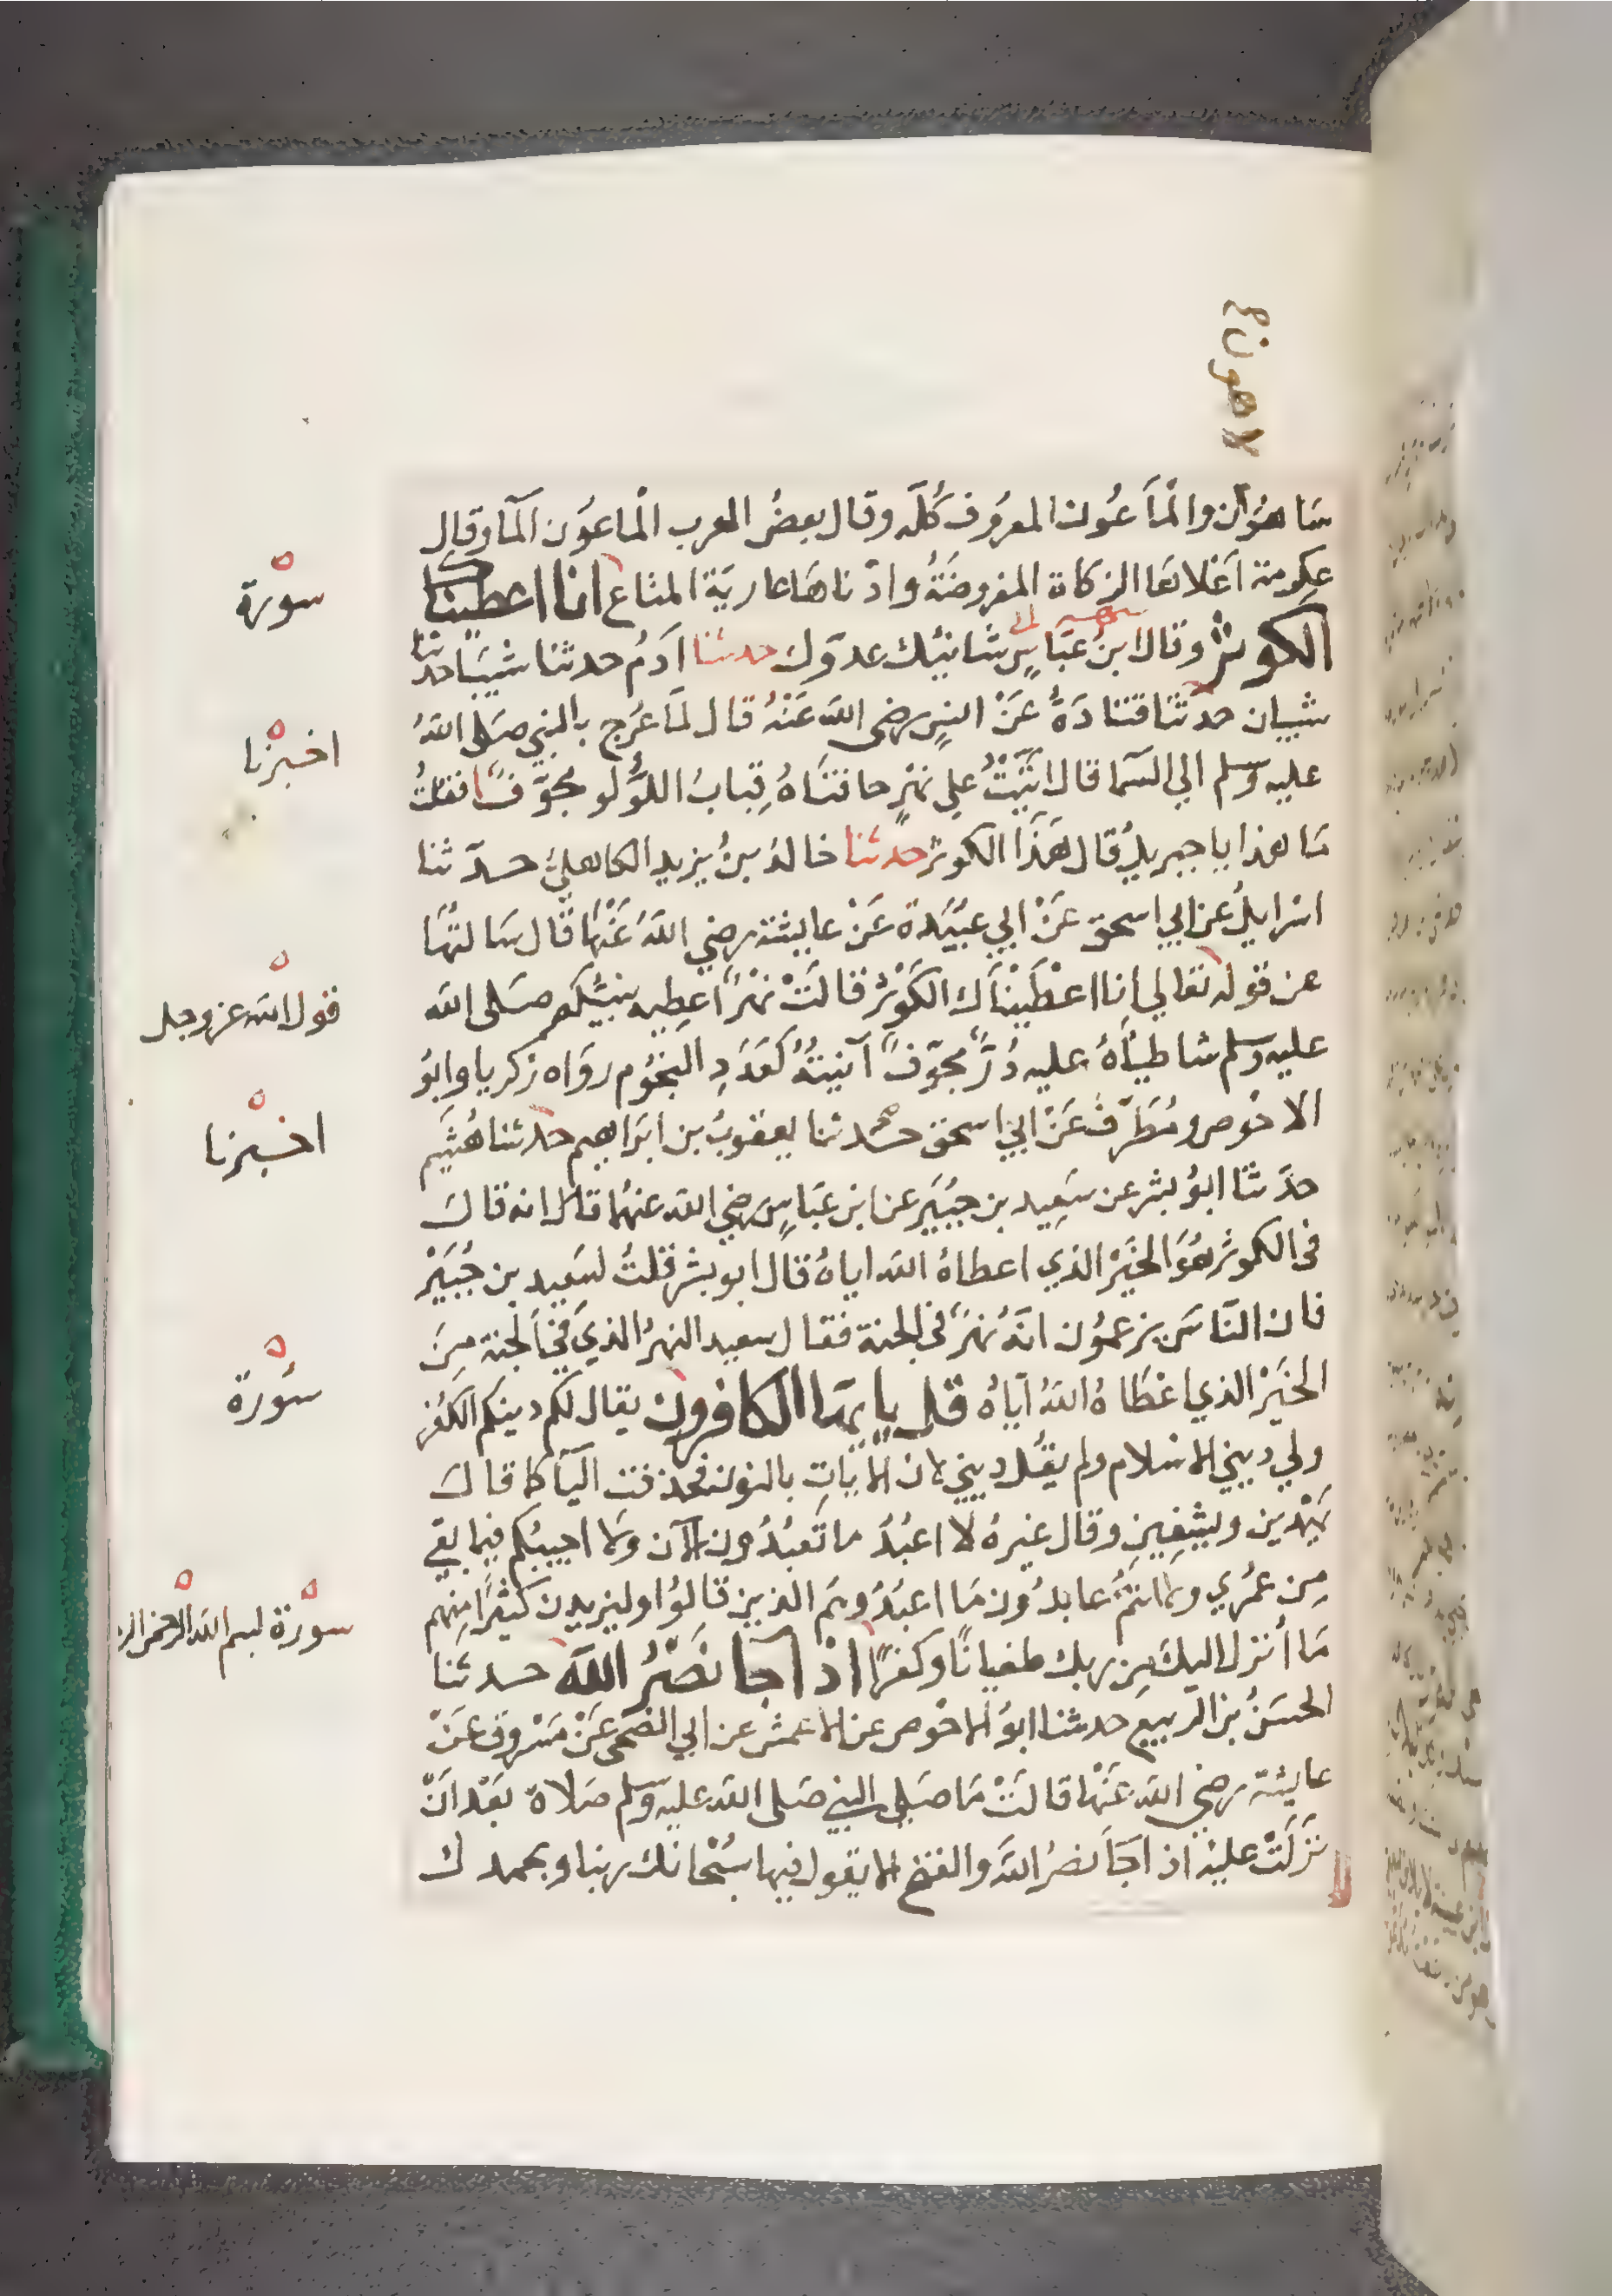 لاهون
سَاهُوْن والْمَاعُون المعرُوف كُلّه وقال بعضُ العرب الْماعوَن الَمآ وقال
عِكرِمة اَعْلاهَا الزكاة المفروضَةُ وادْناهَا عاريَة المتاع انا اعطيناك
الكوثر وقال ابنُ عبَّاسٍ شانئِك عدوّك حدثنا آدَمُ حدثنا شيبًا حدثنا
شيبان حدثنا قتَادَةُ عَنْ انسٍ رضى الله عَنْهُ قال لمَا عُرِج بالنبي صَلى اللهُ
عليه وسلم الي السَّمآ قال اَتيْتُ علي نهْرٍ حافتَاهُ قِبابُ اللؤلو مجوَّفًا فقلتُ
مَا هذا يا جبريلُ قال هَذَا الكوثر حدثنا خالدُ بنُ يزيد الكاهليُّ حدّثنا
اسرايلُ عن ابي اسحق عَنْ ابي عبَيْدَة عَنْ عايشة رضي اللهُ عَنْهَا قال سَالتُهَا
عن قوله تعالي انا اعْطَيْنَاك الكَوْثر قالتْ نهْرٌ اعطيه نبيُّكم صَلى الله
عليه وسلم شاطِئَاهُ عليه دُرٌّ مجوّفٌ آنيتُهُ كَعَدَدِ النجُوم روَاه زكريا وابوُ
الاحْوص ومُطَرِّفٌ عَنْ ابي اسحق حدثنا يعقوبُ بن ابرَاهيم حدثنا هُشَيم
حدّثنا ابوُ بشر عن سَعِيد بن جُبَيَر عن ابن عبَاسٍ رضي الله عنهُما قال انه قال
في الكوثر هُوَ الخَيْر الذي اعطاهُ الله اياهُ قال ابو بشر قلتُ لسَعِيد بن جُبَيْرْ
فان النَّاسَ يزعمُون انَّهُ نهْرٌ في الجنة فقال سعيد النهرُ الذي في الجنة مِنَ
الخَيْر الذي اعْطَاهُ اللهُ اَياهُ قل يا ايها الكافرون يقال لكم دينكم الكفر
ولي ديني الاسْلام ولم يقُل ديني لان الايَاتِ بالنون فحذفت اليَآ كما قال
يَهْدين ويشفِينِ وقال غيرهُ لا اعبُدُ ما تَعبُدُون الآن ولا اجيبكم فيما بقي
مِن عمُري ولا انتُم عابدُون مَا اعبُدُ وهُم الذين قالُوا وليزيدن كثيرًا مِنهم
مَا أُنزل اليك مِن ربك طغيانًا وكفرًا اذا جآ نصْرُ الله حدثنا
الحسَنُ بن الرَّبيع حدثنا ابوُ الاحْوص عن الاعمش عن ابي الضحى عَنْ مَسْروق عَنْ
عايشة رضي الله عَنْهَا قالَتْ مَا صَلي النبي صَلى الله عليه وسلم صَلاة بَعْد اَنْ
نَزَلَتْ عليْه اذا جَآ نصْرُ الله والفتح الا يقول فيها سُبْحانك ربنا وبحمدك
سورة
اخبرنا
قول الله عز وجل
اخبرنا
سُورة
سورة بسم الله الرحمن الر